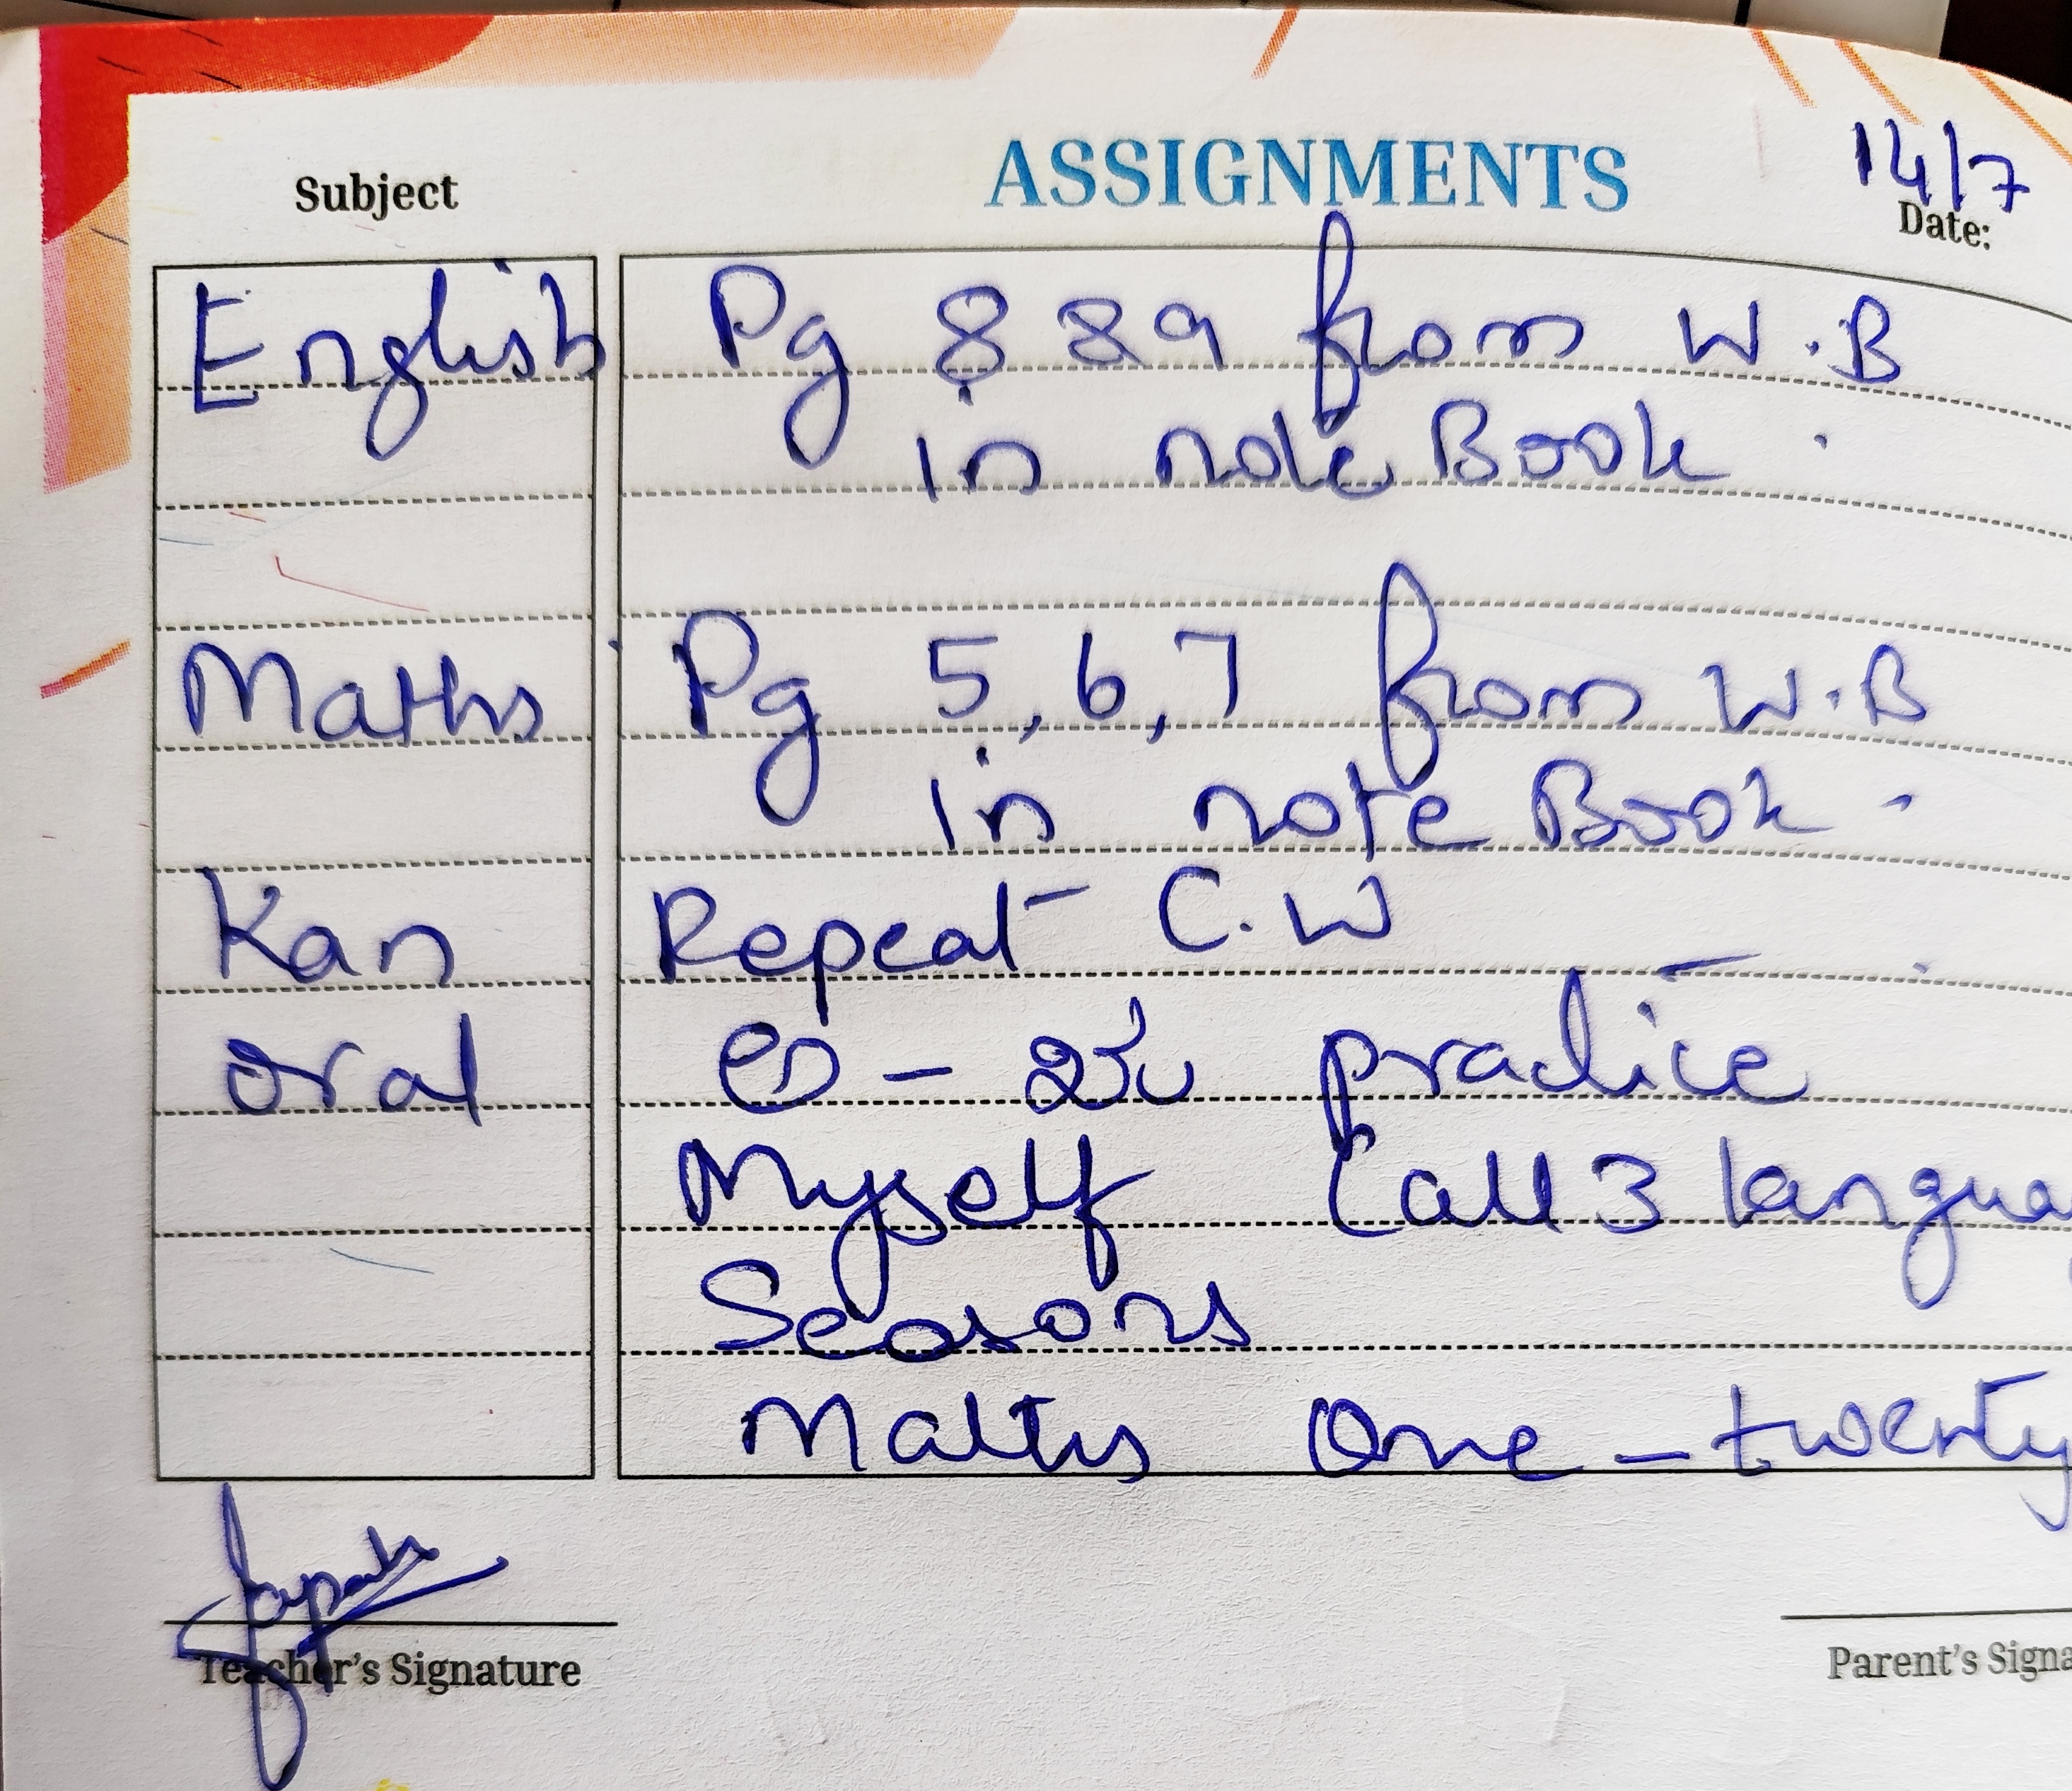 ASSIGNMENTS
14/7
Subject
Date:
English Pg 8 & 9 from W.B
in note Book.
Maths Pg 5,6,7 from W.B
in note Book.
Kan Repeat C.W
oral ಅ - practice
Myself (all 3 langua
Seasons
Maths One - twenty
Teacher's Signature
Parent's Signa